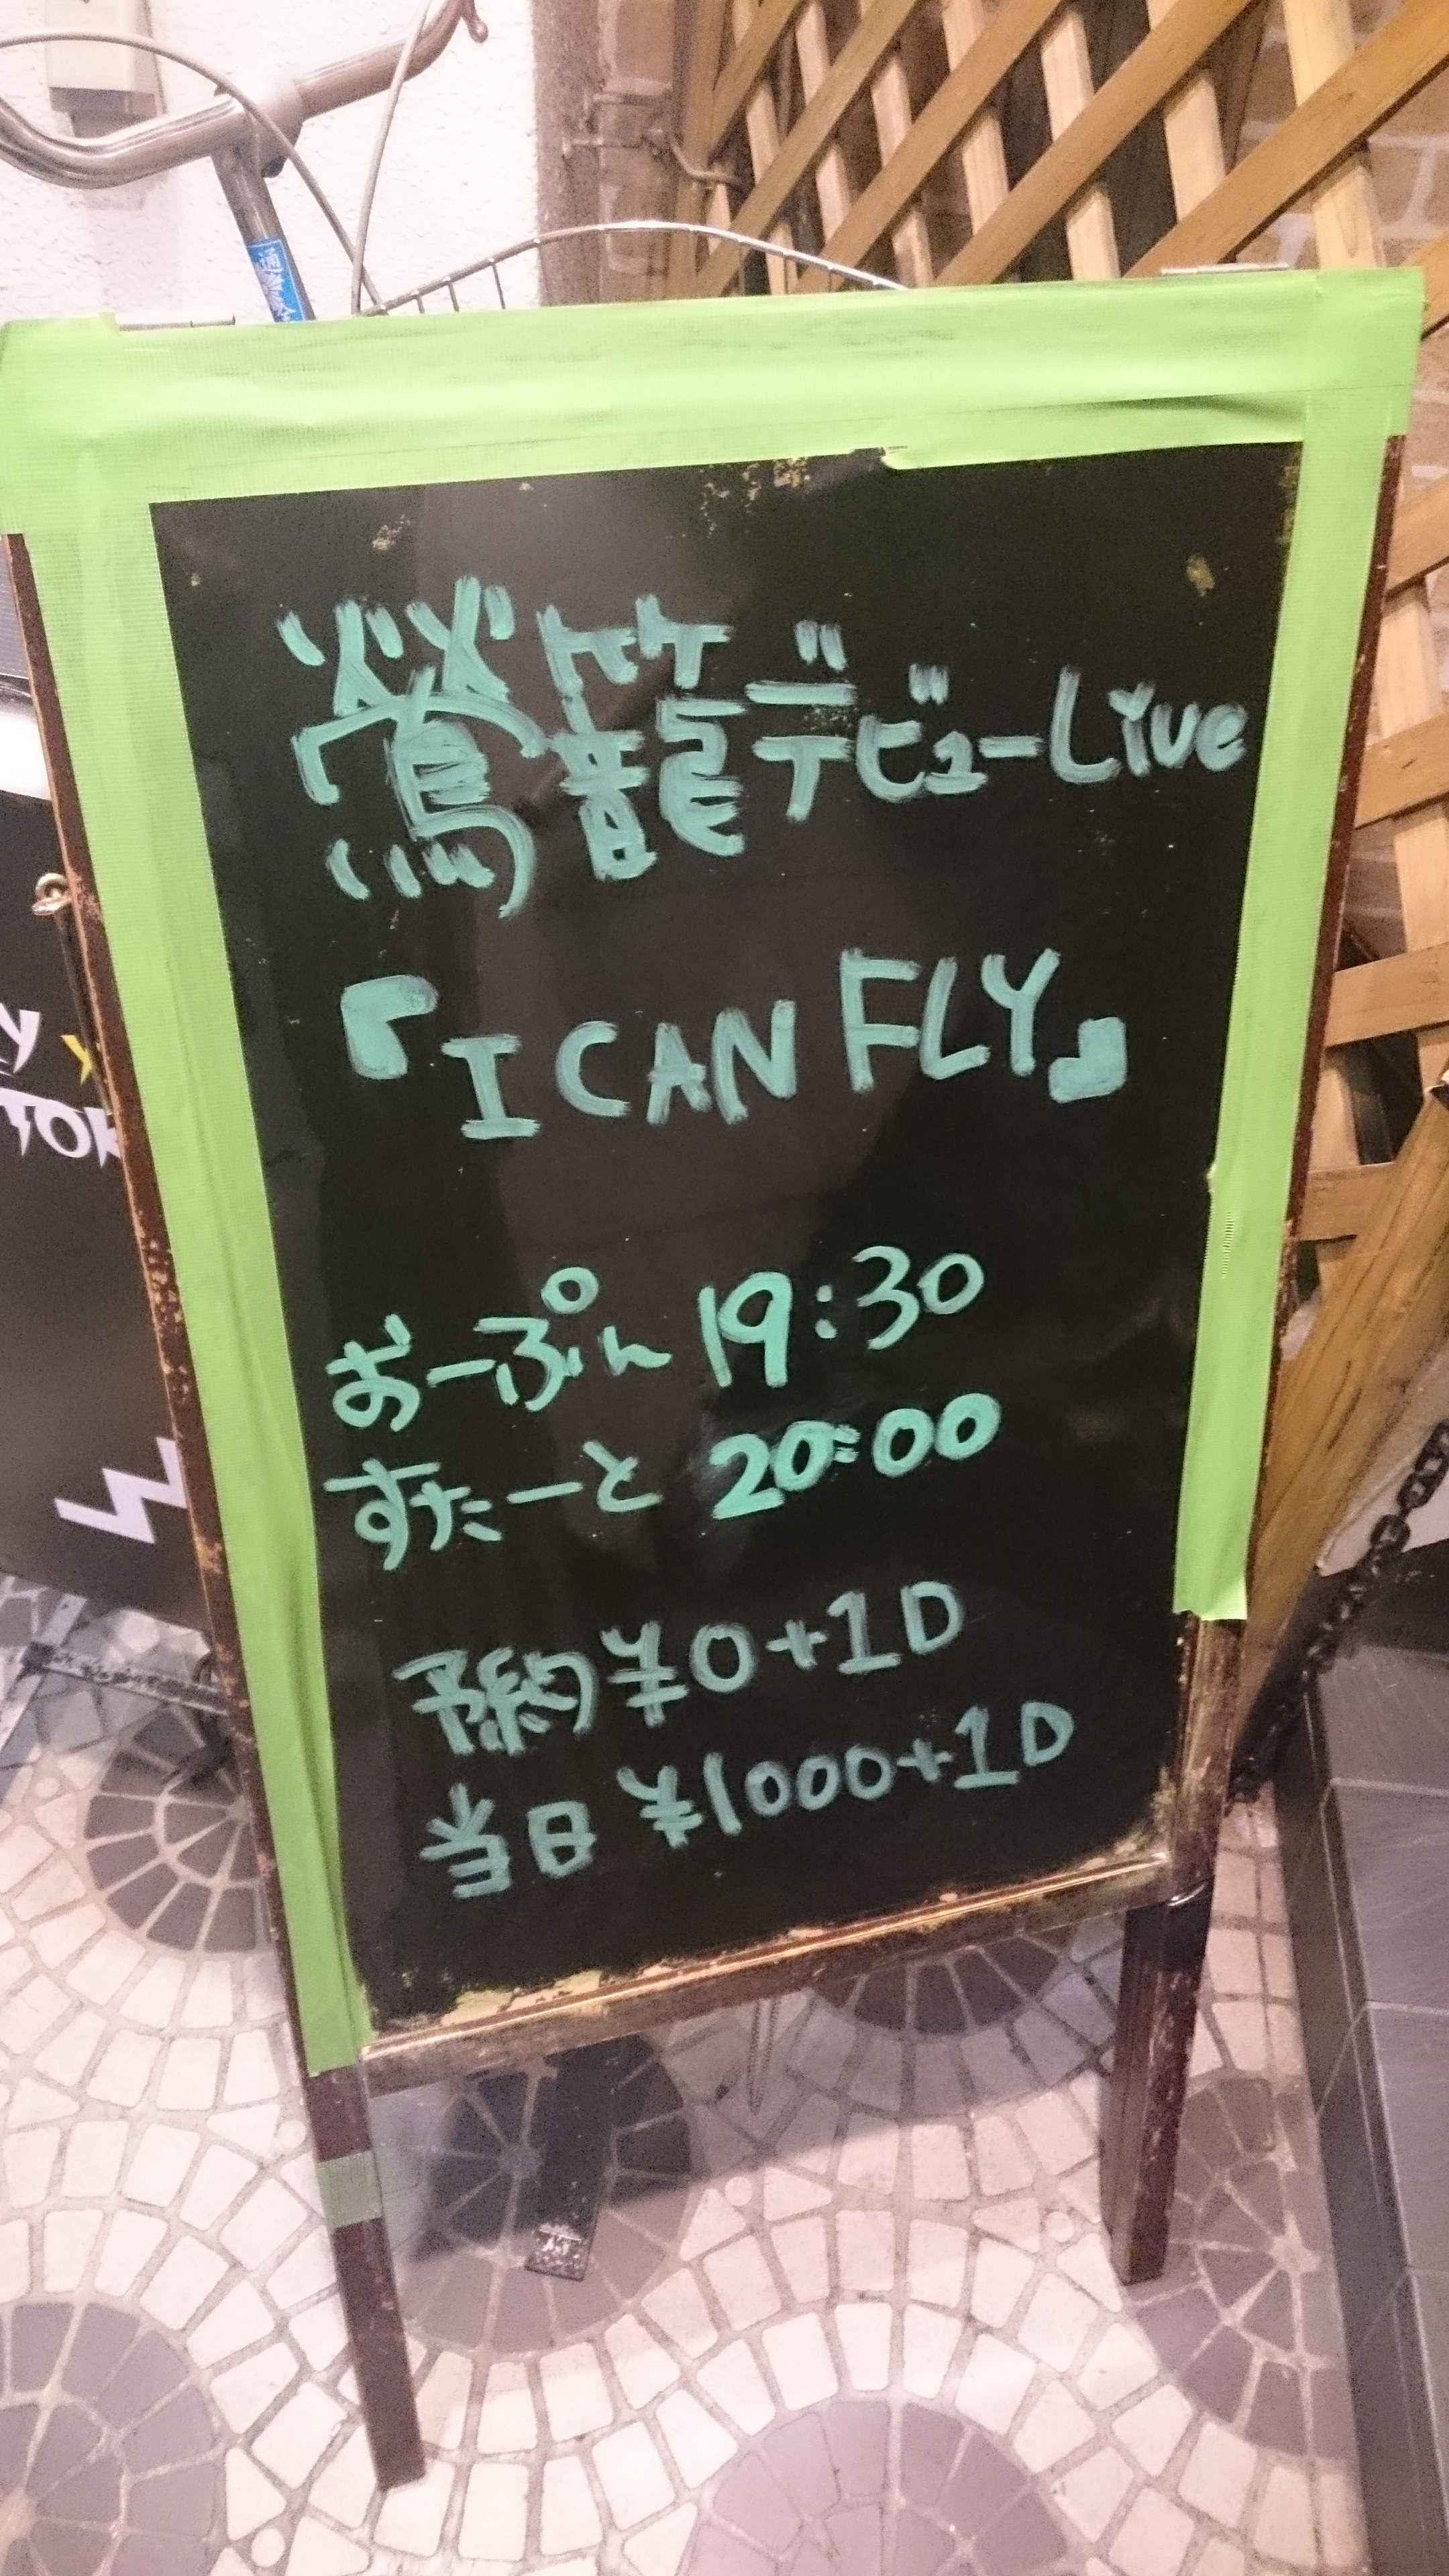 鶯籠デビューLive
『I CAN FLY』
おーぷん 19:30
すたーと 20:00
予約 ¥0+1D
当日 ¥1000+1D
y
TOK